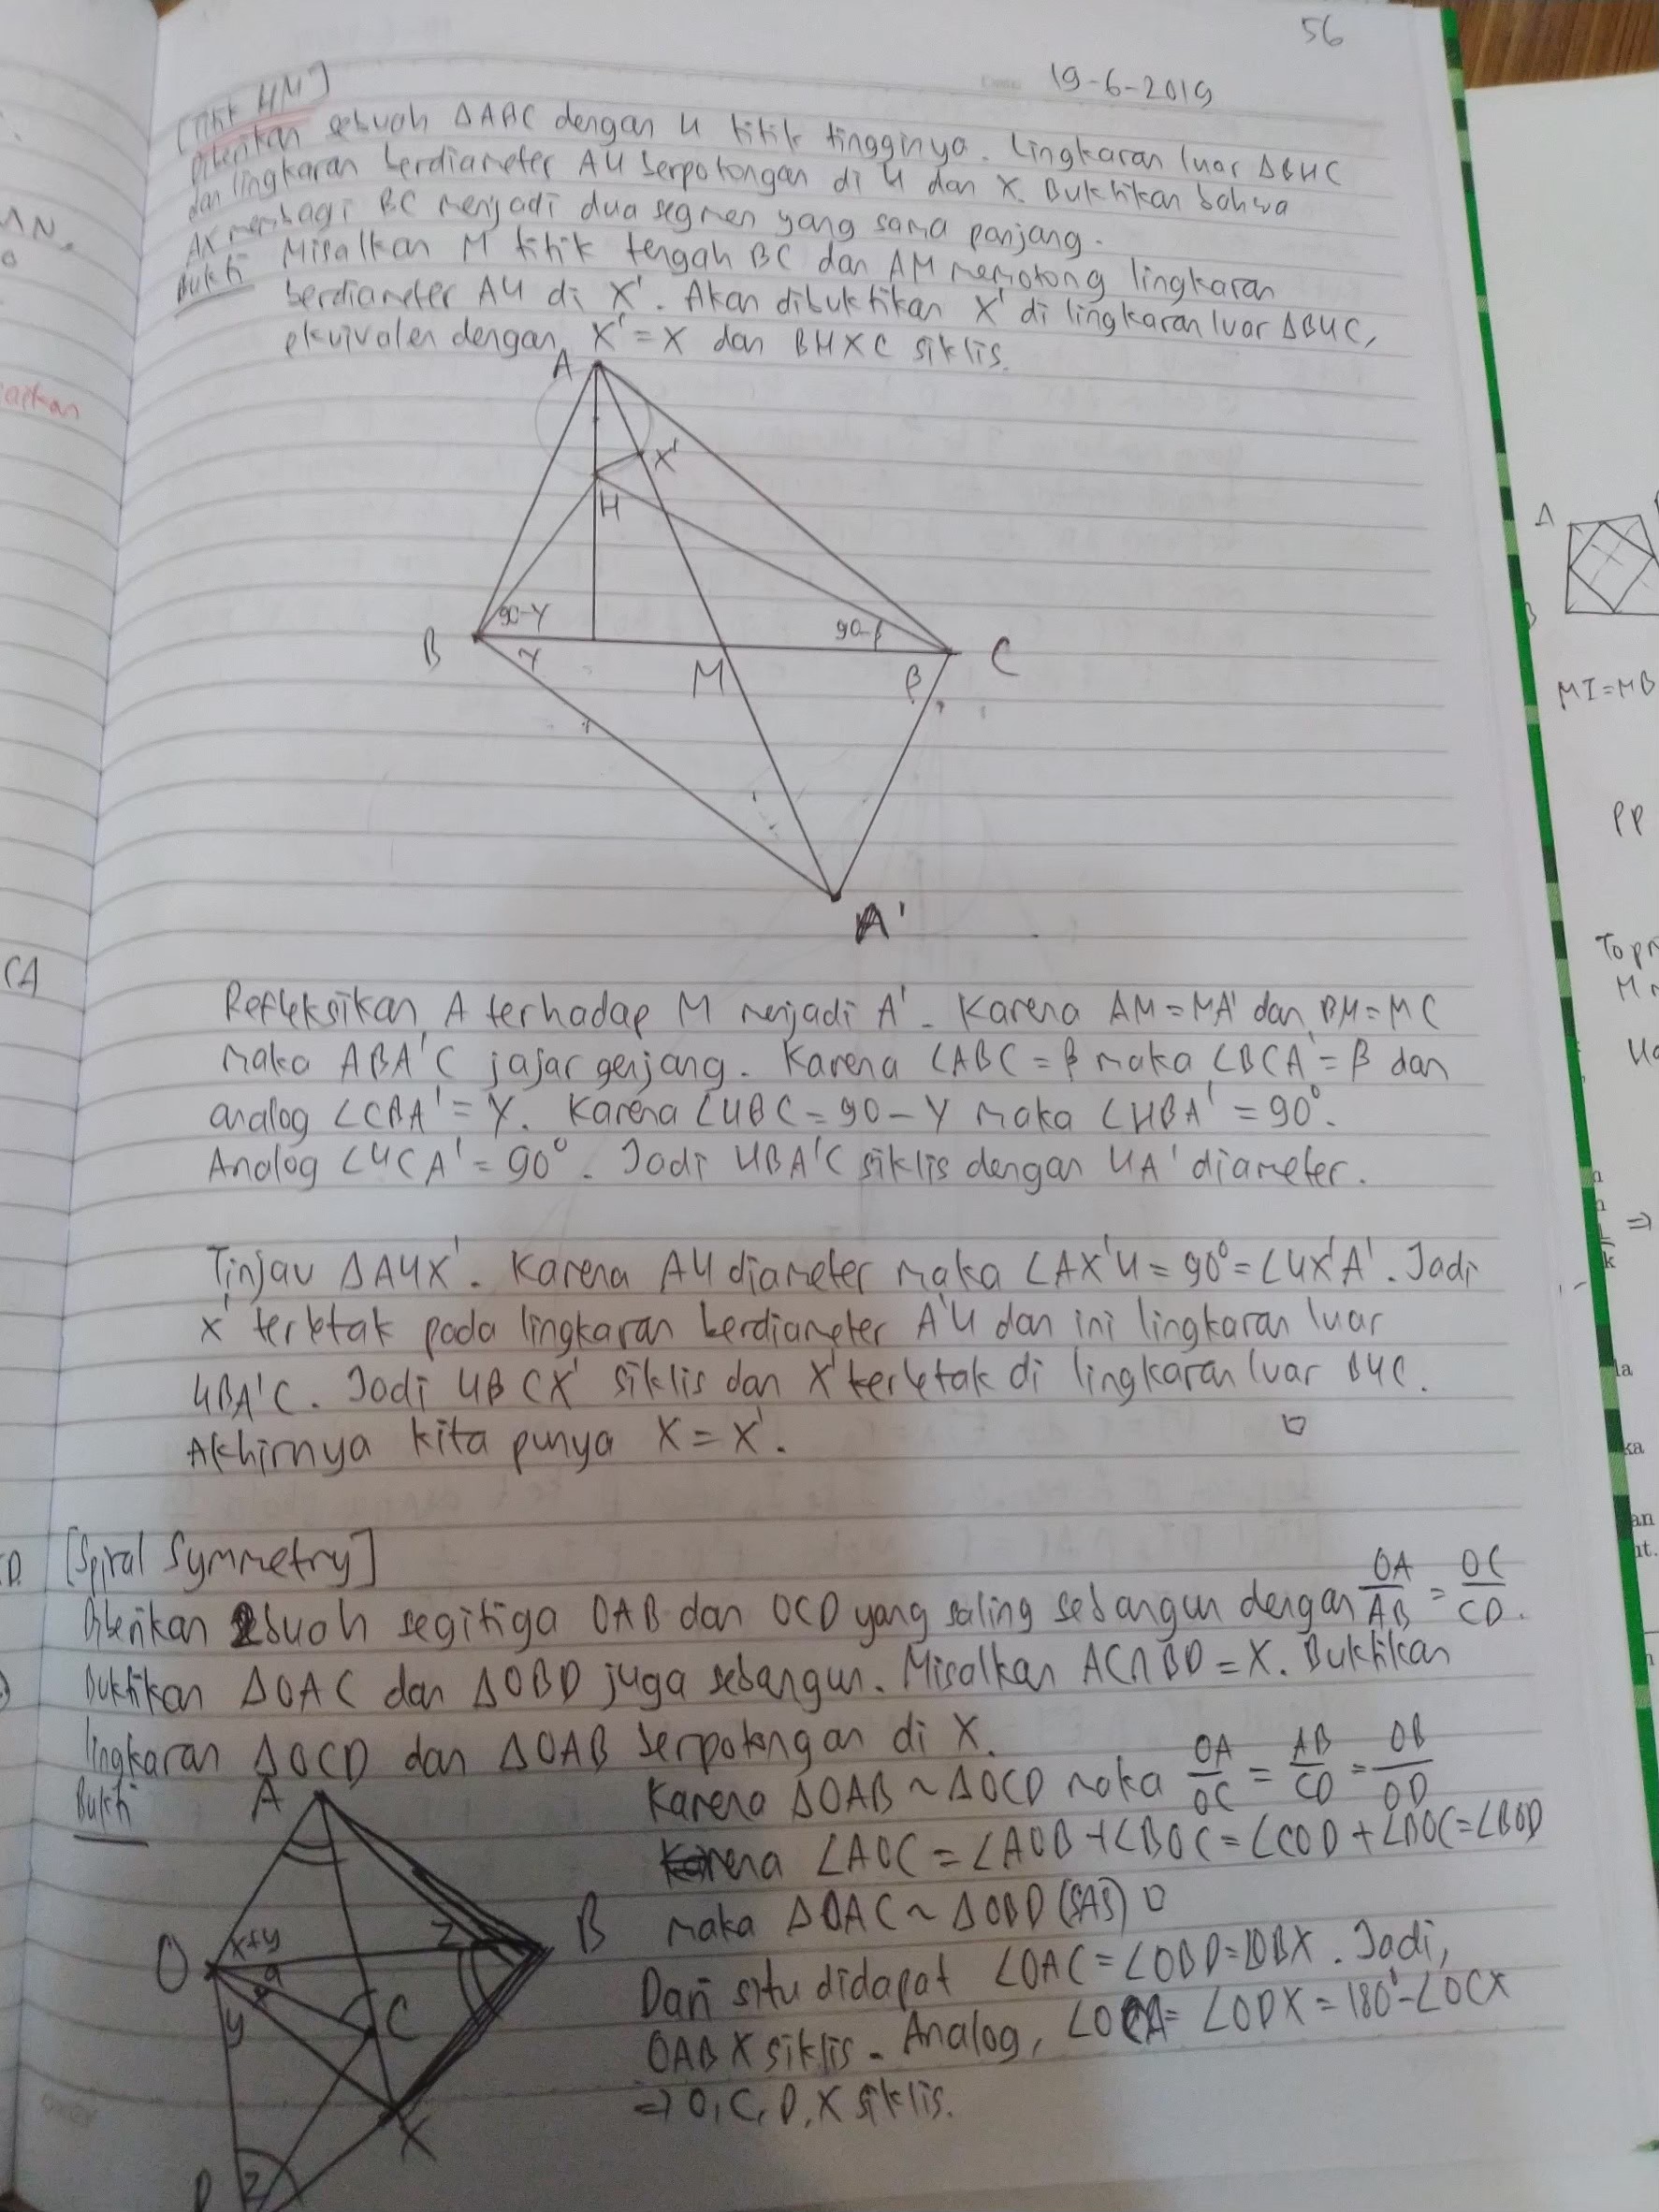 56
19-6-2019
[Titik HM]
Diberikan sebuah ΔABC dengan H titik tingginya. Lingkaran luar ΔBHC
dan lingkaran berdiameter AH berpotongan di H dan X. Buktikan bahwa
AX membagi BC menjadi dua segmen yang sama panjang.
Bukti Misalkan M titik tengah BC dan AM memotong lingkaran
berdiameter AH di X'. Akan dibuktikan X' di lingkaran luar ΔBHC,
ekuivalen dengan X' = X dan BHXC siklis.
A
X'
H
90-γ
90-β
B
γ
M
β
C
A'
Refleksikan A terhadap M menjadi A'. Karena AM = MA' dan BM = MC
maka ABA'C jajar genjang. Karena ∠ABC = β maka ∠BCA' = β dan
analog ∠CBA' = γ. Karena ∠HBC = 90 - γ maka ∠HBA' = 90°.
Analog ∠HCA' = 90°. Jadi HBA'C siklis dengan HA' diameter.
Tinjau ΔAHX'. Karena AH diameter maka ∠AX'H = 90° = ∠HX'A'. Jadi
X' terletak pada lingkaran berdiameter A'H dan ini lingkaran luar
HBA'C. Jadi HBCX' siklis dan X' terletak di lingkaran luar BHC.
Akhirnya kita punya X = X'. □
[Spiral Symmetry]
Diberikan 2 buah segitiga OAB dan OCD yang saling sebangun dengan OA/AB = OC/CD.
Buktikan ΔOAC dan ΔOBD juga sebangun. Misalkan AC∩BD = X. Buktikan
lingkaran ΔOCD dan ΔOAB berpotongan di X.
Bukti
Karena ΔOAB ~ ΔOCD maka OA/OC = AB/CD = OB/OD
Karena ∠AOC = ∠AOB + ∠BOC = ∠COD + ∠BOC = ∠BOD
maka ΔOAC ~ ΔOBD (SAS) □
Dari situ didapat ∠OAC = ∠OBD = ∠OBX. Jadi,
OABX siklis. Analog, ∠OCA = ∠ODX = 180° - ∠OCX
⇒ O, C, D, X siklis.
A
O
x+y
a
y
z
B
C
X
D
z
AN.
CA
A
B
MI = MB
PP
⇒
k
la
ka
an